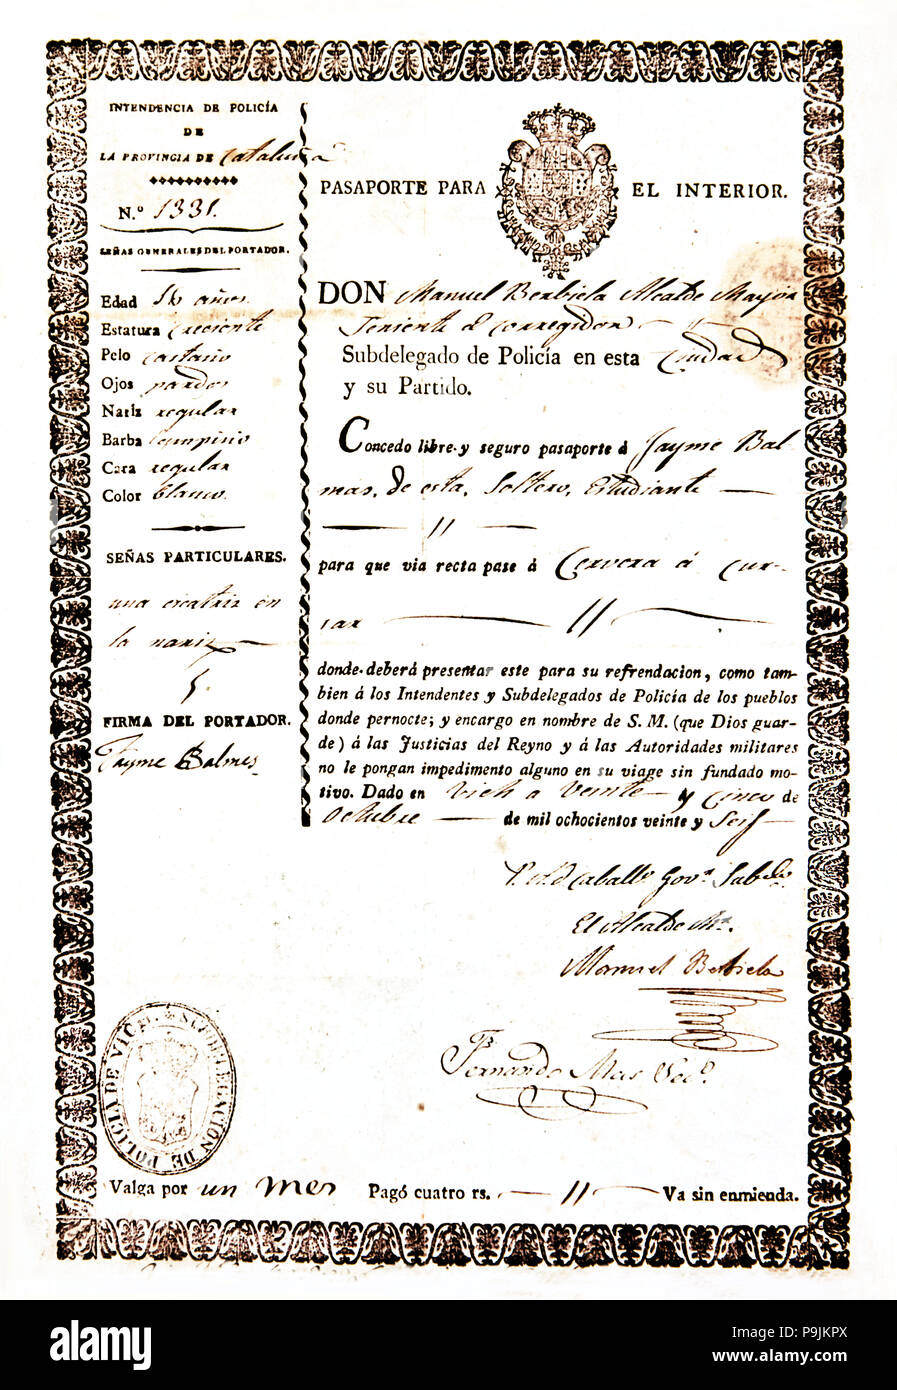 INTENDENCIA DE POLICÍA
DE
LA PROVINCIA DE Cataluña
N.º 1331.
SEÑAS GENERALES DEL PORTADOR.
Edad 16 años.
Estatura Creciente
Pelo castaño
Ojos pardos
Nariz regular
Barba lampiño
Cara regular
Color blanco.
SEÑAS PARTICULARES.
una cicatriz en
la nariz
FIRMA DEL PORTADOR.
Jayme Balmes
PASAPORTE PARA EL INTERIOR.
DON Manuel Berbiela Alcalde Mayor
Teniente de Corregidor
Subdelegado de Policía en esta Ciudad
y su Partido.
Concedo libre y seguro pasaporte á Jayme Bal-
mas, de esta, Soltero, Estudiante
para que via recta pase á Cervera á cur-
sar
donde deberá presentar este para su refrendacion, como tam-
bien á los Intendentes y Subdelegados de Policía de los pueblos
donde pernocte; y encargo en nombre de S. M. (que Dios guar-
de) á las Justicias del Reyno y á las Autoridades militares
no le pongan impedimento alguno en su viage sin fundado mo-
tivo. Dado en Vich a veinte y cinco de
Octubre de mil ochocientos veinte y Seis
Caballº Govr. Subdo.
El Alcalde Mr.
Manuel Berbiela
Fernando Mas Secº.
SUBDELEGACION DE POLICIA DE VICH
Valga por un mes Pagó cuatro rs. Va sin enmienda.
alamy
Image ID: P9JKPX
www.alamy.com